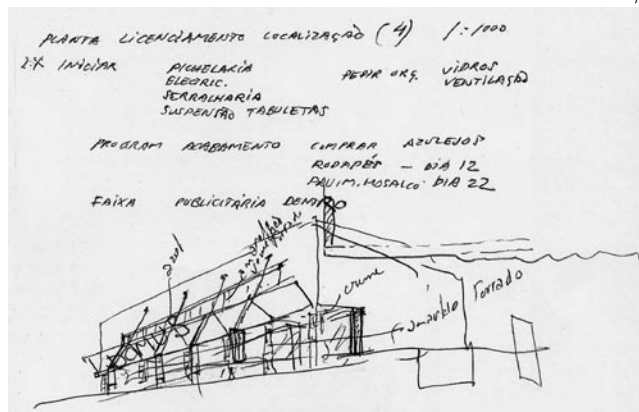 PLANTA LICENCIAMENTO LOCALIZAÇÃO (4) 1:1000
2ª INICIAR PICHELARIA
ELECTRIC.
SERRALHARIA
SUSPENSÃO TABULETAS
PEDIR ORÇ. VIDROS
VENTILAÇÃO
PROGRAM ACABAMENTO COMPRAR AZULEJOS
RODAPÉS - DIA 12
PAVIM. MOSAICO DIA 22
FAIXA PUBLICITÁRIA DENTRO
azul
amarelo
creme
amarelo Torrado